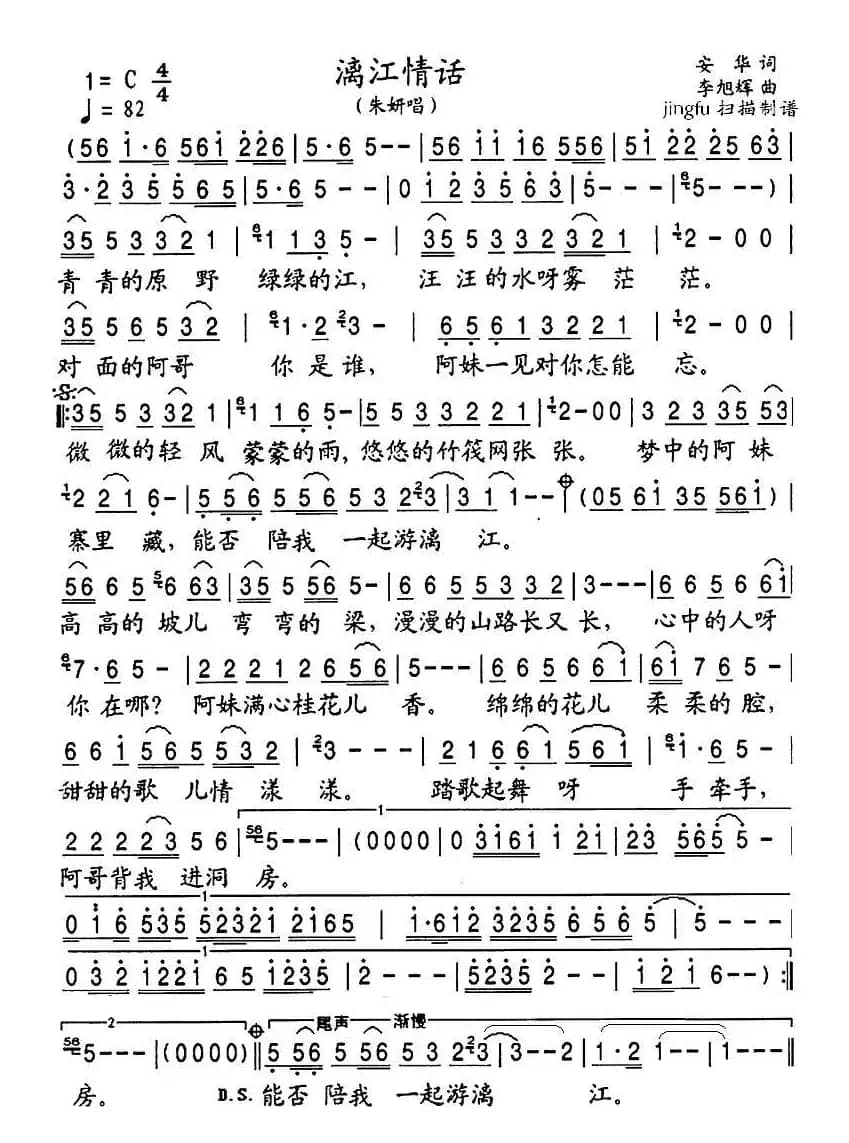 漓江情话
1= C 4/4
♩= 82
(朱妍唱)
安 华 词
李旭辉 曲
jingfu 扫描制谱
(56 i·6 561 226 | 5·6 5-- | 56 11 16 556 | 51 22 25 63 |
3·2 35 5 65 | 5·6 5 - - | 0 12 35 63 | 5- - - | 65- - - ) |
35 5 3 32 1 | 61 1 3 5- | 35 5 3 32 32 1 | 12 - 0 0 |
青 青的原 野 绿绿的江, 汪 汪的水呀雾 茫 茫。
35 5 65 32 | 61·2 23 - | 65 61 32 21 | 12 - 0 0 |
对 面的阿哥 你是谁, 阿妹一见对你怎能 忘。
‖:35 5 3 32 1 | 61 1 6 5- | 55 33 22 1 | 12-00 | 3 23 35 53 |
微 微的轻 风 蒙蒙的雨, 悠悠的竹筏网张 张。 梦中的阿 妹
12 21 6- | 5 56 556 53 223 | 31 1-- | (05 61 35 561) |
寨里 藏, 能否 陪我 一起游漓 江。
566 6 5 56 63 | 35 5 56 5- | 66 55 33 2 | 3--- | 66 56 61 |
高 高的 坡儿 弯 弯的 梁, 漫漫的山路长又长, 心中的人呀
67·6 5 - | 22 21 26 56 | 5--- | 66 56 661 | 61 76 5- |
你在哪? 阿妹满心桂花儿 香。 绵绵的花儿 柔 柔的腔,
66 1 56 5 532 | 23 - - - | 21 661 5 61 | 61·6 5- |
甜甜的歌 儿情 漾 漾。 踏歌起舞 呀 手 牵手,
1
22 2 23 5 6 | 565--- | (0000) | 0 3161 1 21 | 23 565 5 - |
阿哥背我 进洞 房。
1
0 1 6 535 52321 2165 | 1·612 3235 6 56 5 | 5 - - - |
1
0 3 2 1221 6 5 1235 | 2 - - - | 5235 2 - - | 1 2 1 6--) :‖
2 尾声 渐慢
565--- | (0000) ‖ 5 56 5 56 5 3 223 | 3--2 | 1·2 1-- | 1--- ‖
房。 D.S. 能否 陪我 一起游漓 江。